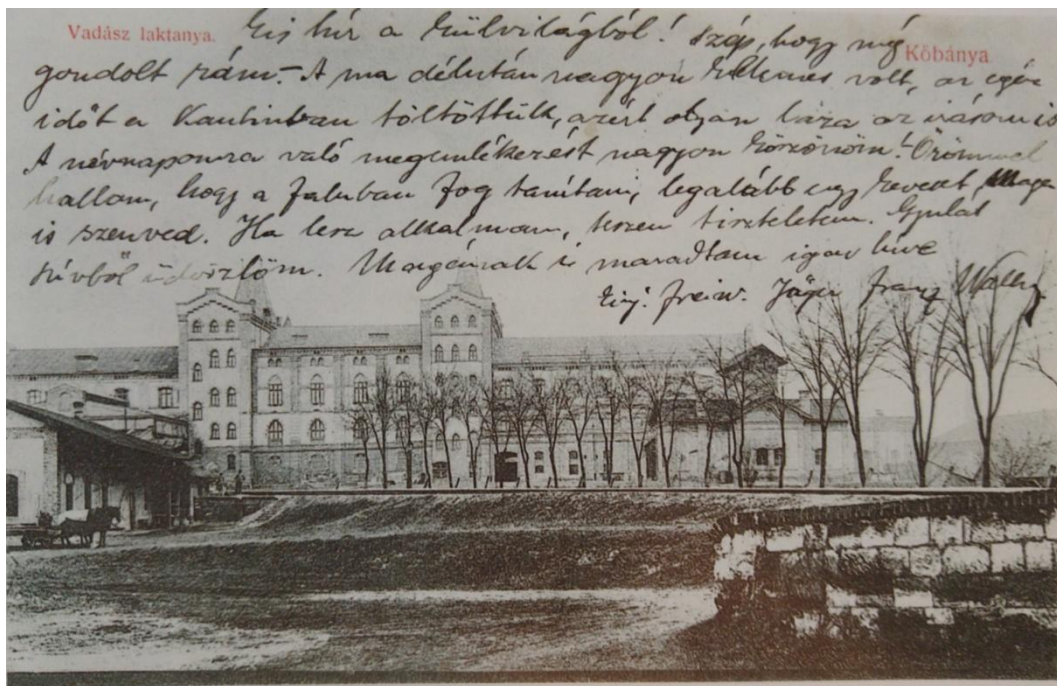 Vadász laktanya.
Kőbánya
Kis hír a külvilágból! szép, hogy még
gondolt rám. – A ma délután nagyon volt, az egész
időt a Kantinban töltöttük, azért olyan az írásom is
A névnapomra való megemlékezést nagyon köszönöm! Örömmel
hallom, hogy a faluban fog tanítani, legalább egy keveset Maga
is szenved. Ha lesz alkalmam, teszem tiszteletem. Gyulát
szívből üdvözlöm. Magának is maradtam igaz híve
Einj. freiw. Jäger Franz